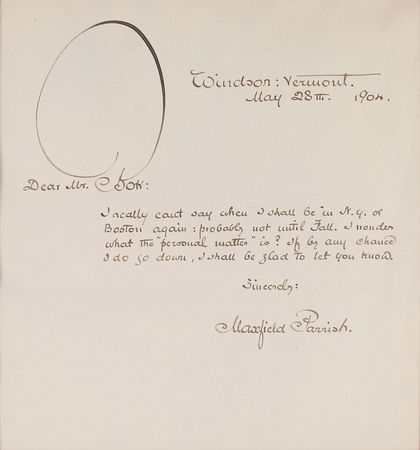 Windsor : Vermont.
May 28th. 1904.
Dear Mr.
I really can't say when I shall be in N.Y. or
Boston again : probably not until Fall. I wonder
what the "personal matter" is? If by any chance
I do go down, I shall be glad to let you know.
Sincerely:
Maxfield Parrish.